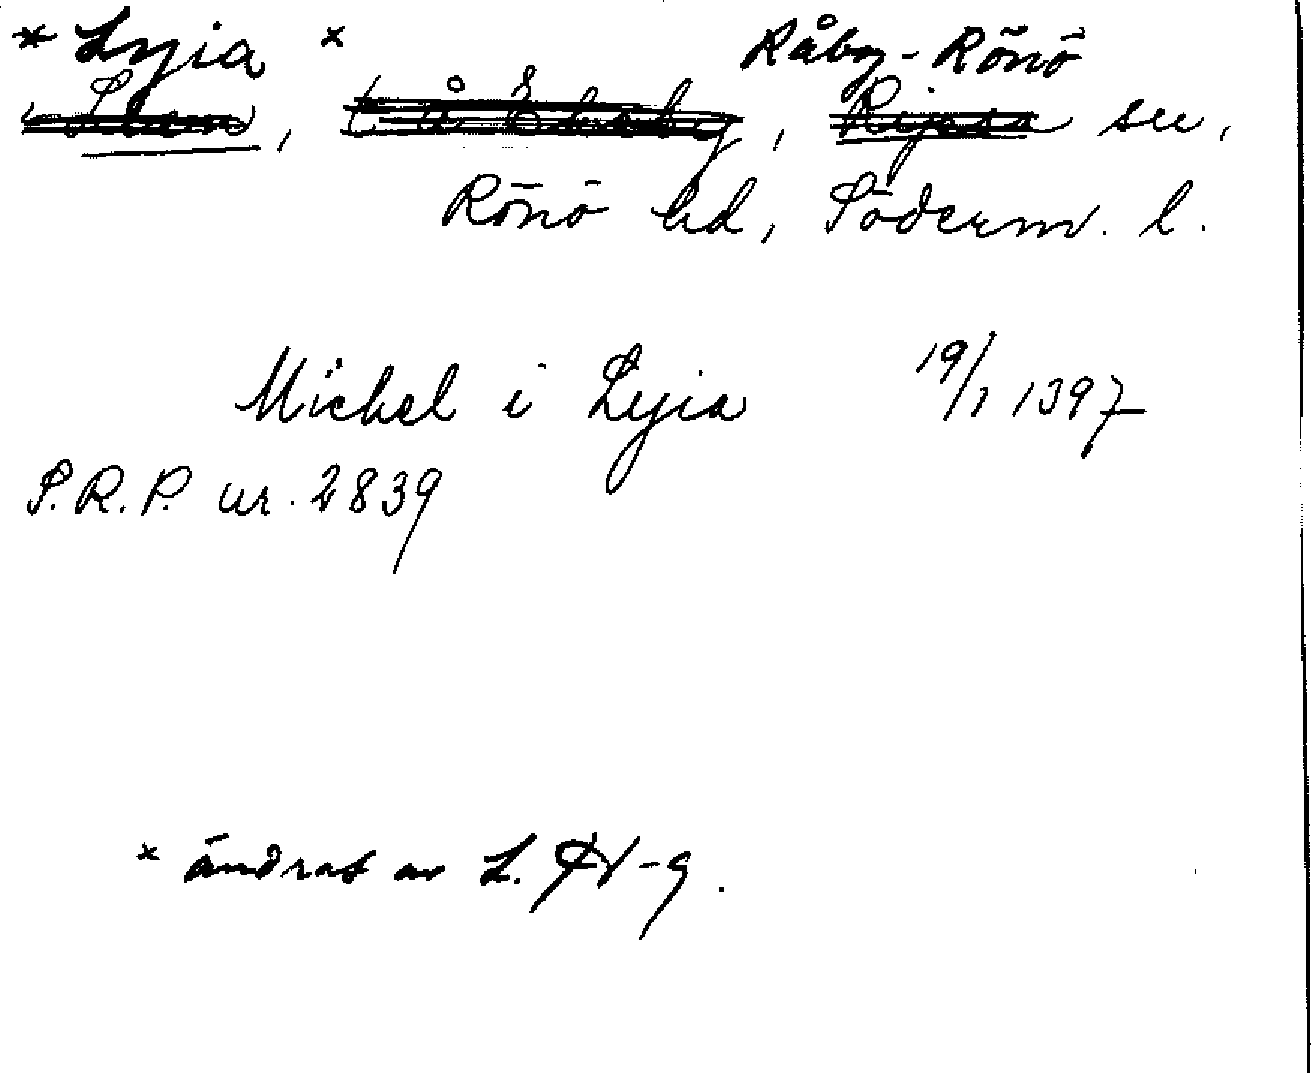 * Lyia * Råby-Rönö
, , sn,
Rönö hd, Söderm. l.
Michel i Lyia 19/1 1397
S.R.P. nr. 2839
* ändrat av L.